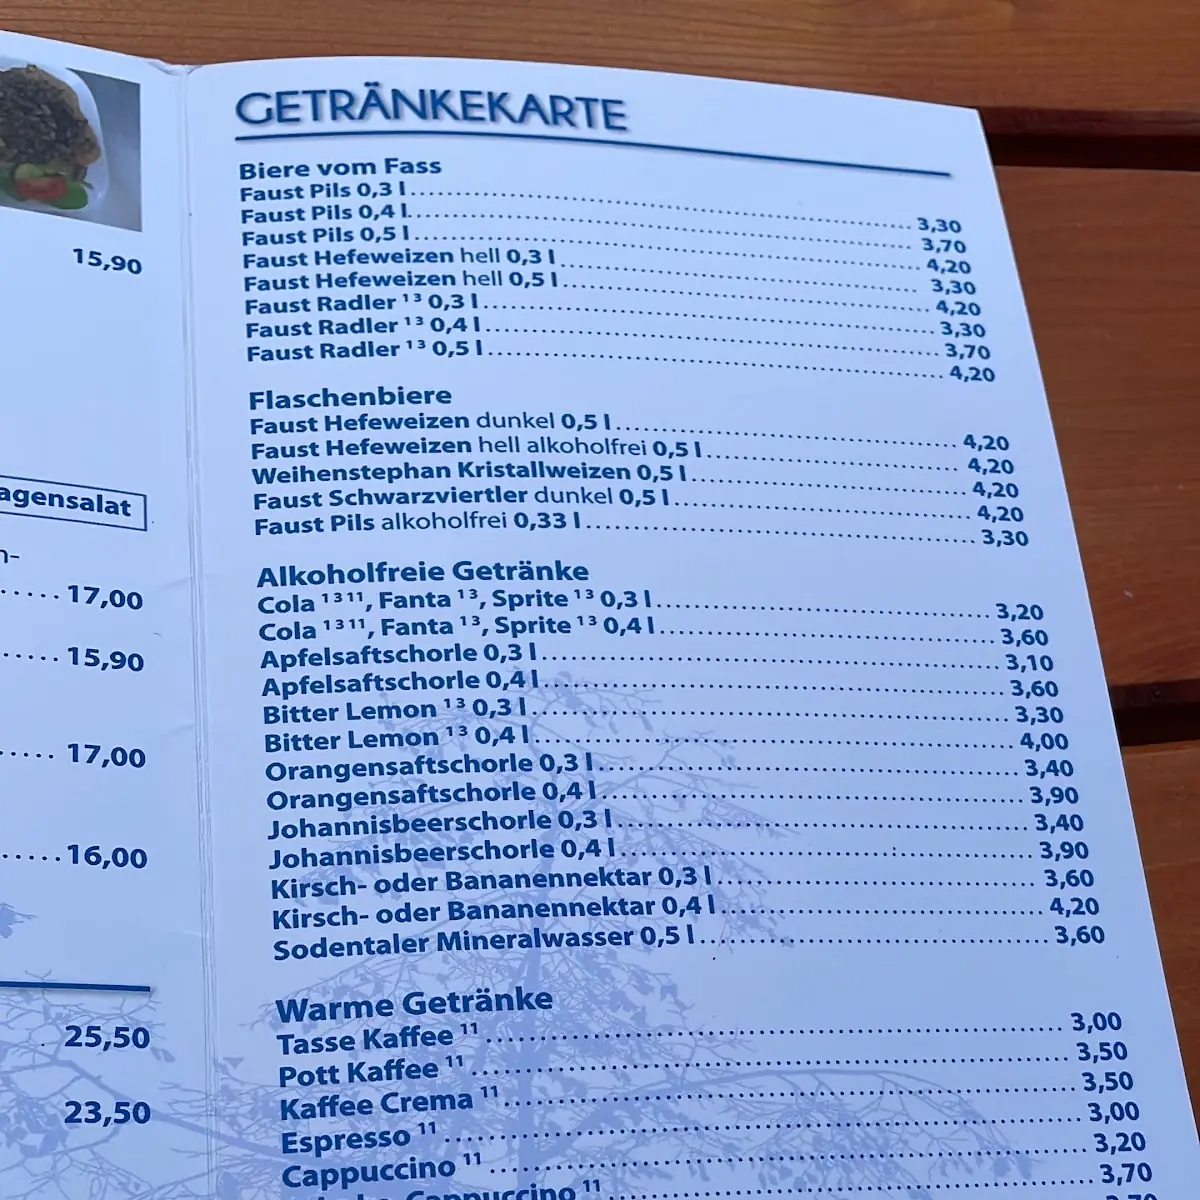 15,90
agensalat
n-
.....17,00
.....15,90
.....17,00
.....16,00
. 25,50
23,50
GETRÄNKEKARTE
Biere vom Fass
Faust Pils 0,3 l.......... 3,30
Faust Pils 0,4 l.......... 3,70
Faust Pils 0,5 l.......... 4,20
Faust Hefeweizen hell 0,3 l.......... 3,30
Faust Hefeweizen hell 0,5 l.......... 4,20
Faust Radler ¹ ³ 0,3 l.......... 3,30
Faust Radler ¹ ³ 0,4 l.......... 3,70
Faust Radler ¹ ³ 0,5 l.......... 4,20
Flaschenbiere
Faust Hefeweizen dunkel 0,5 l.......... 4,20
Faust Hefeweizen hell alkoholfrei 0,5 l.......... 4,20
Weihenstephan Kristallweizen 0,5 l.......... 4,20
Faust Schwarzviertler dunkel 0,5 l.......... 4,20
Faust Pils alkoholfrei 0,33 l.......... 3,30
Alkoholfreie Getränke
Cola ¹ ³ ¹¹, Fanta ¹ ³, Sprite ¹ ³ 0,3 l.......... 3,20
Cola ¹ ³ ¹¹, Fanta ¹ ³, Sprite ¹ ³ 0,4 l.......... 3,60
Apfelsaftschorle 0,3 l.......... 3,10
Apfelsaftschorle 0,4 l.......... 3,60
Bitter Lemon ¹ ³ 0,3 l.......... 3,30
Bitter Lemon ¹ ³ 0,4 l.......... 4,00
Orangensaftschorle 0,3 l.......... 3,40
Orangensaftschorle 0,4 l.......... 3,90
Johannisbeerschorle 0,3 l.......... 3,40
Johannisbeerschorle 0,4 l.......... 3,90
Kirsch- oder Bananennektar 0,3 l.......... 3,60
Kirsch- oder Bananennektar 0,4 l.......... 4,20
Sodentaler Mineralwasser 0,5 l.......... 3,60
Warme Getränke
Tasse Kaffee ¹¹.......... 3,00
Pott Kaffee ¹¹.......... 3,50
Kaffee Crema ¹¹.......... 3,50
Espresso ¹¹.......... 3,00
Cappuccino ¹¹.......... 3,20
Cappuccino ¹¹.......... 3,70